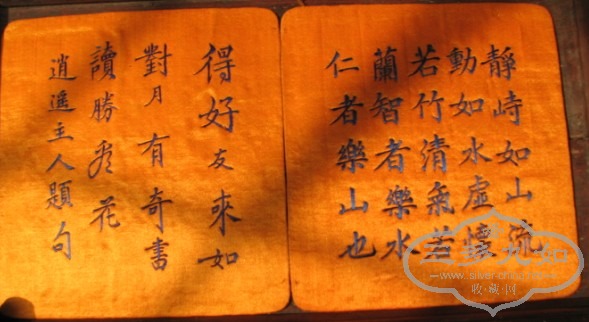 靜峙如山流
動如水虛懷
若竹清氣若
蘭智者樂水
仁者樂山也
得好友來如
對月有奇書
讀勝看花
逍遙主人題句
收·藏·网